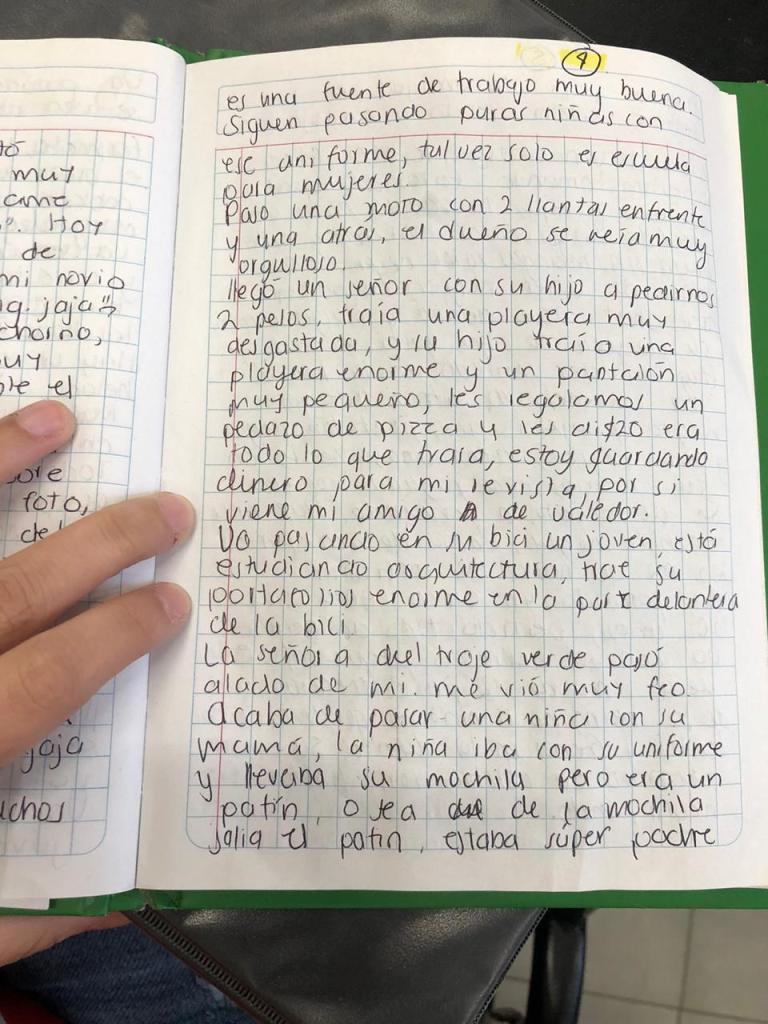 tó
muy
ame
". Hoy
de
mi novio
g. jaja"
chorno,
uy
ore el
ore
foto,
del
jaja
uchos
4
es una fuente de trabajo muy buena.
Siguen pasando puras niñas con
ese uniforme, tal vez solo es escuela
para mujeres.
Paso una moto con 2 llantas enfrente
y una atras, el dueño se veía muy
orgulloso.
llegó un señor con su hijo a pedirnos
2 pesos, traía una playera muy
desgastada, y su hijo traía una
playera enorme y un pantalón
muy pequeño, les regalamos un
pedazo de pizza y les di $20 era
todo lo que traía, estoy guardando
dinero para mi revista, por si
viene mi amigo de valedor.
Va pasando en su bici un joven, está
estudiando arquitectura, trae su
portafolios enorme en la parte delantera
de la bici.
La señora del traje verde pasó
alado de mi. me vió muy feo.
acaba de pasar una niña con su
mamá, la niña iba con su uniforme
y llevaba su mochila pero era un
patín, o sea de la mochila
salia el patin, estaba súper padre